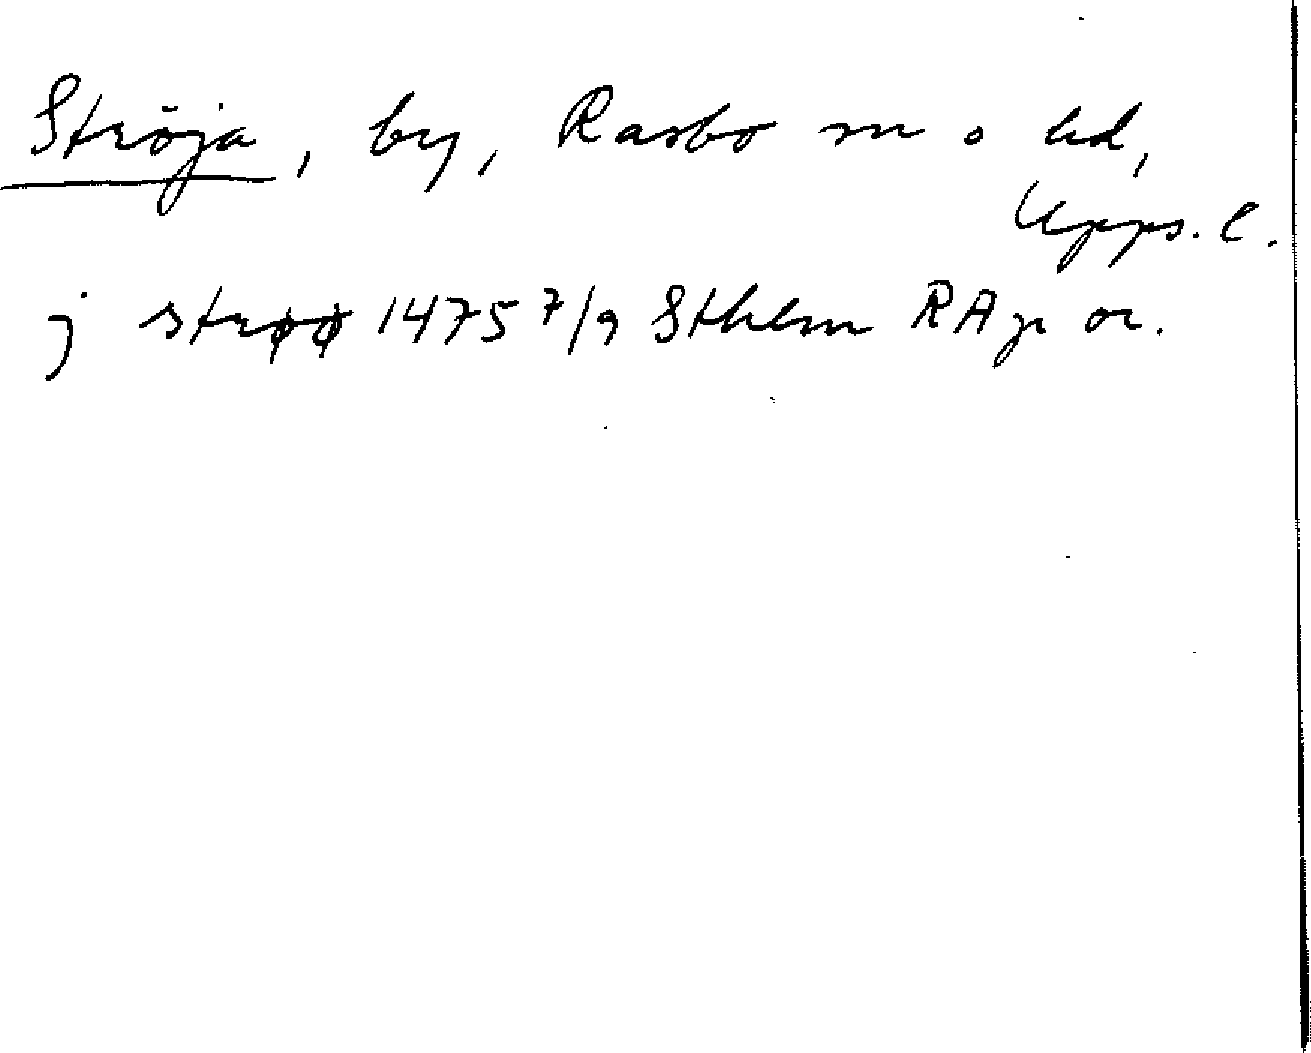 Ströja, by, Rasbo sn o hd,
Upps. l.
j strøø 1475 7/9 Sthlm RAp or.